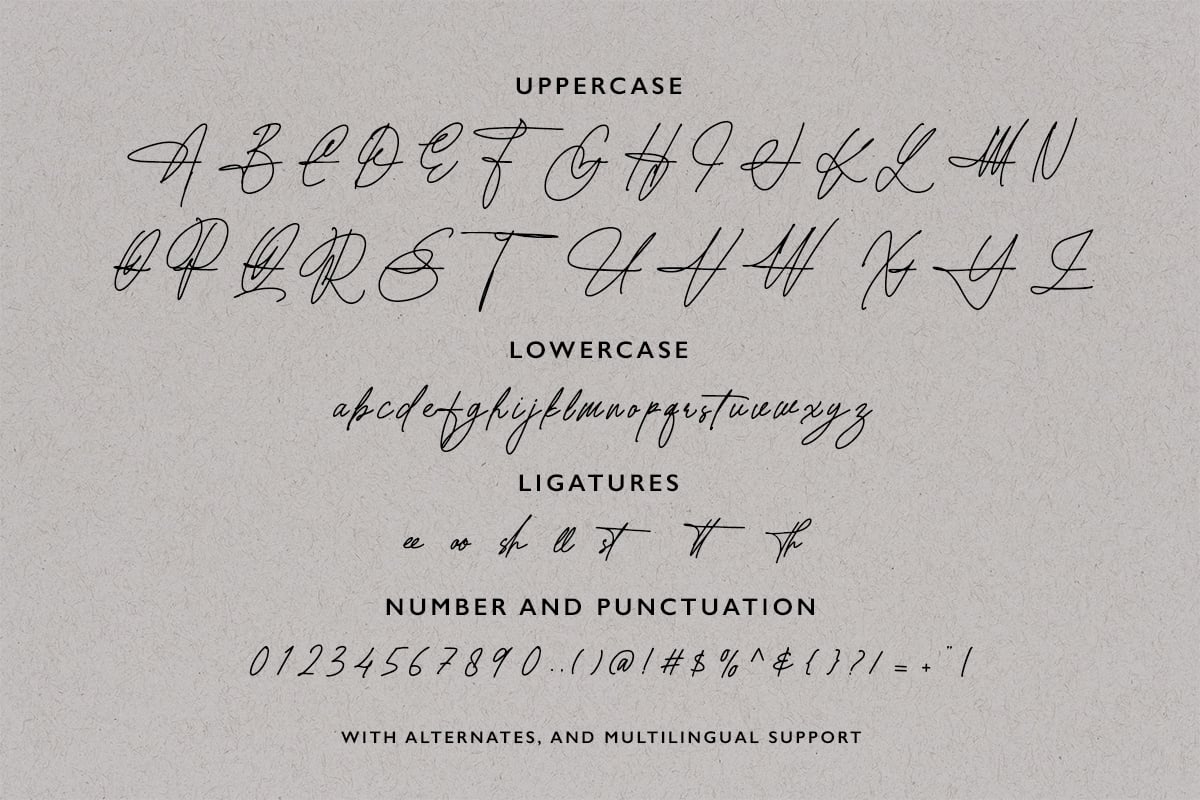 UPPERCASE
A B C D E F G H I J K L M N
O P Q R S T U V W X Y Z
LOWERCASE
abcdefghijklmnopqrstuvwxyz
LIGATURES
ee oo sh ll st tt th
NUMBER AND PUNCTUATION
0 1 2 3 4 5 6 7 8 9 0 . . ( ) @ ! # $ % ^ & { } ? / = + " |
WITH ALTERNATES, AND MULTILINGUAL SUPPORT